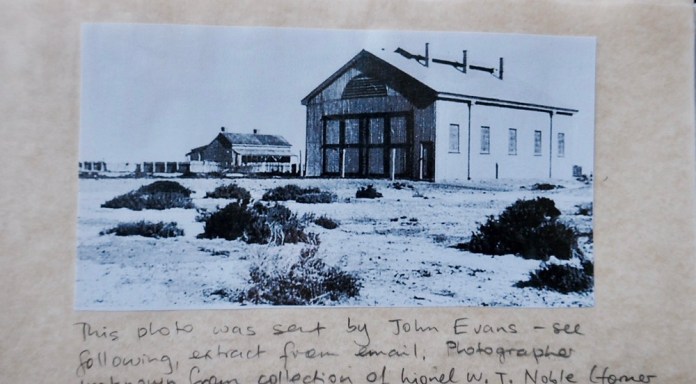 This photo was sent by John Evans - see
following, extract from email. Photographer
unknown from collection of Lionel W. T. Noble (former